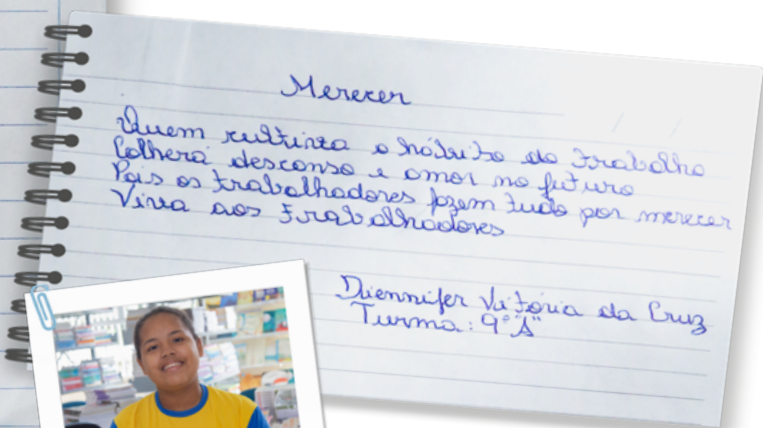 Merecer
Quem cultiva o hábito do trabalho
Colherá descanso e amor no futuro
Pois os trabalhadores fazem tudo por merecer
Viva aos trabalhadores
Diennifer Vitória da Cruz
Turma: 9° "A"